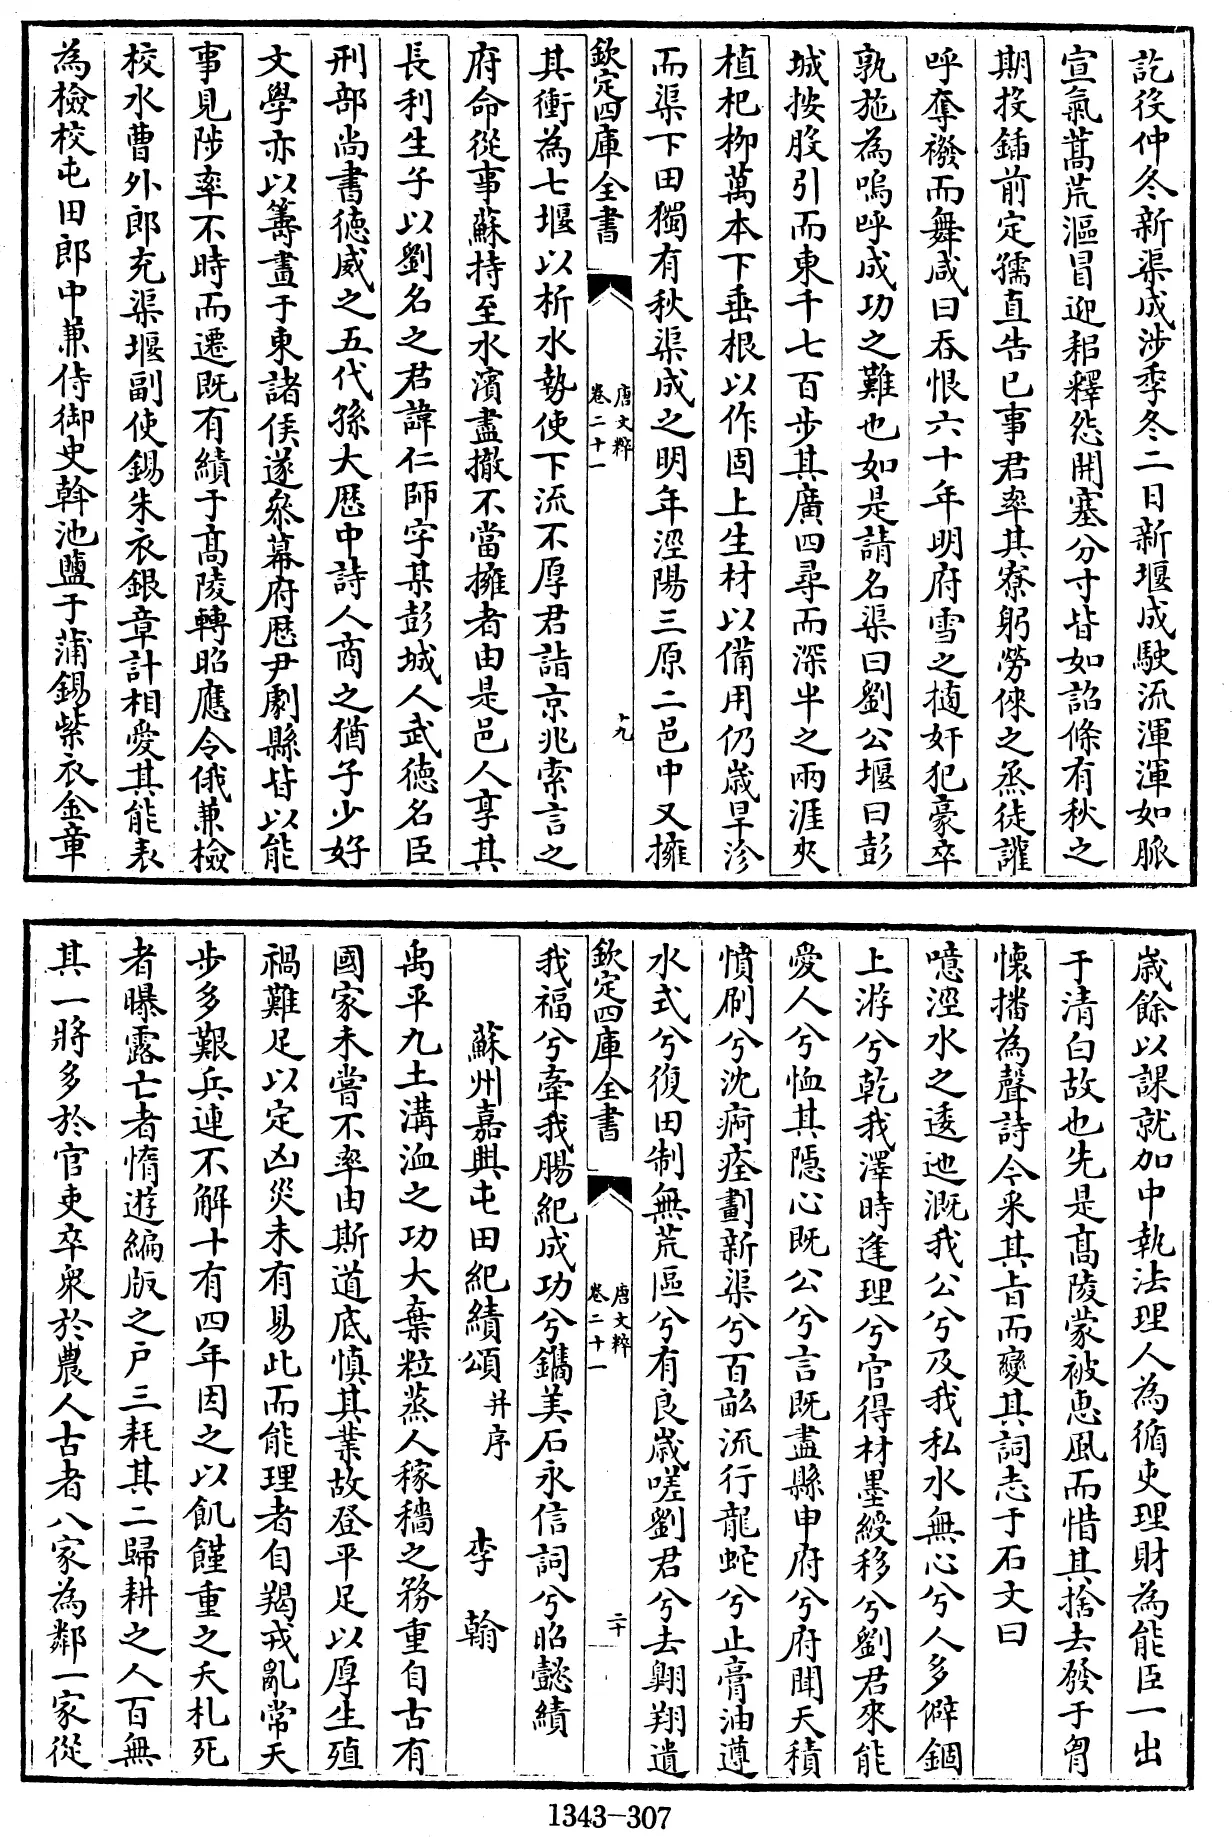 訖役仲冬新渠成涉季冬二日新堰成駛流渾渾如脈
宣氣蒿荒漚冒迎耜釋怨開塞分寸皆如詔條有秋之
期投鍤前定孺直告已事君率其寮躬勞倈之烝徒讙
呼奪襏而舞咸曰吞恨六十年明府雪之擿奸犯豪卒
孰施為嗚呼成功之難也如是請名渠曰劉公堰曰彭
城按股引而東千七百步其廣四尋而深半之兩涯夾
植杞柳萬本下垂根以作固上生材以備用仍歲旱沴
而渠下田獨有秋渠成之明年涇陽三原二邑中又擁
欽定四庫全書
唐文粹
卷二十一
十九
其衝為七堰以折水勢使下流不厚君詣京兆索言之
府命從事蘇持至水濱盡撤不當擁者由是邑人享其
長利生子以劉名之君諱仁師字某彭城人武德名臣
刑部尚書德威之五代孫大厯中詩人商之猶子少好
文學亦以籌畫于東諸侯遂參幕府厯尹劇縣皆以能
事見陟率不時而遷既有績于髙陵轉昭應令俄兼檢
校水曹外郎充渠堰副使錫朱衣銀章計相愛其能表
為檢校屯田郎中兼侍御史斡池鹽于蒲錫紫衣金章
歲餘以課就加中執法理人為循吏理財為能臣一出
于清白故也先是髙陵蒙被恵風而惜其捨去發于胷
懐播為聲詩今采其旨而變其詞志于石文曰
噫涇水之逶迤溉我公兮及我私水無心兮人多僻錮
上游兮乾我澤時逢理兮官得材墨綬移兮劉君來能
愛人兮恤其隠心既公兮言既盡縣申府兮府聞天積
憤刷兮沈痾痊劃新渠兮百畝流行龍蛇兮止膏油遵
水式兮復田制無荒區兮有良歲嗟劉君兮去翺翔遺
欽定四庫全書
唐文粹
卷二十一
二十
我福兮牽我腸紀成功兮鐫美石永信詞兮昭懿績
蘇州嘉興屯田紀績頌 并序 李翰
禹平九土溝洫之功大棄粒蒸人稼穡之務重自古有
國家未嘗不率由斯道底慎其業故登平足以厚生殖
禍難足以定凶災未有易此而能理者自羯戎亂常天
步多艱兵連不解十有四年因之以飢饉重之夭札死
者曝露亡者惰遊編版之戸三耗其二歸耕之人百無
其一將多於官吏卒衆於農人古者八家為鄰一家從
1343-307